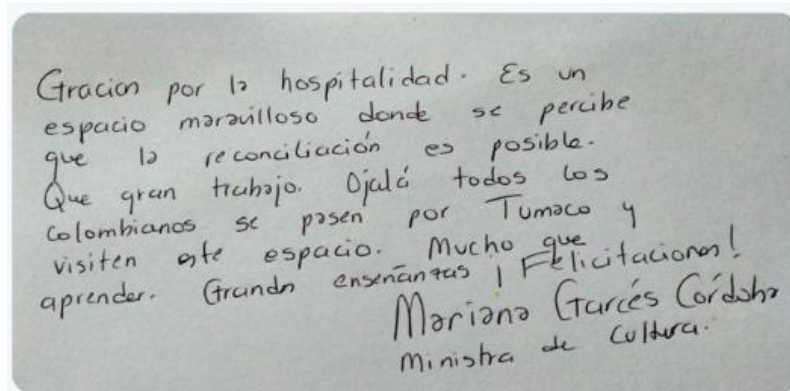 Gracias por la hospitalidad. Es un
espacio maravilloso donde se percibe
que la reconciliación es posible.
Que gran trabajo. Ojalá todos los
colombianos se pasen por Tumaco y
visiten este espacio. Mucho que
aprender. Grandes enseñanzas ¡Felicitaciones!
Mariana Garcés Córdoba
Ministra de Cultura.